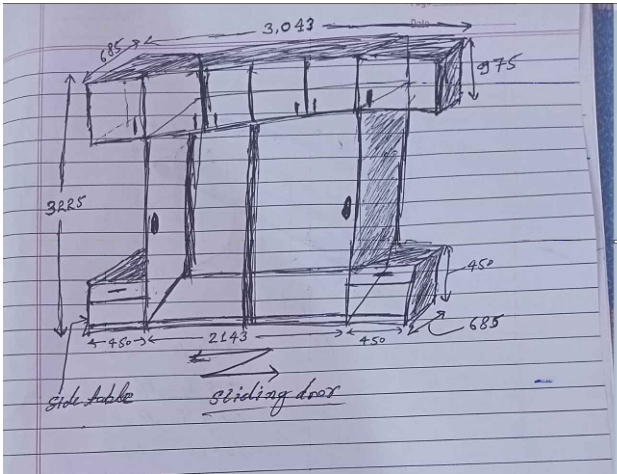 Date
3,043
685
975
3225
450
685
450
2143
450
side table
sliding door